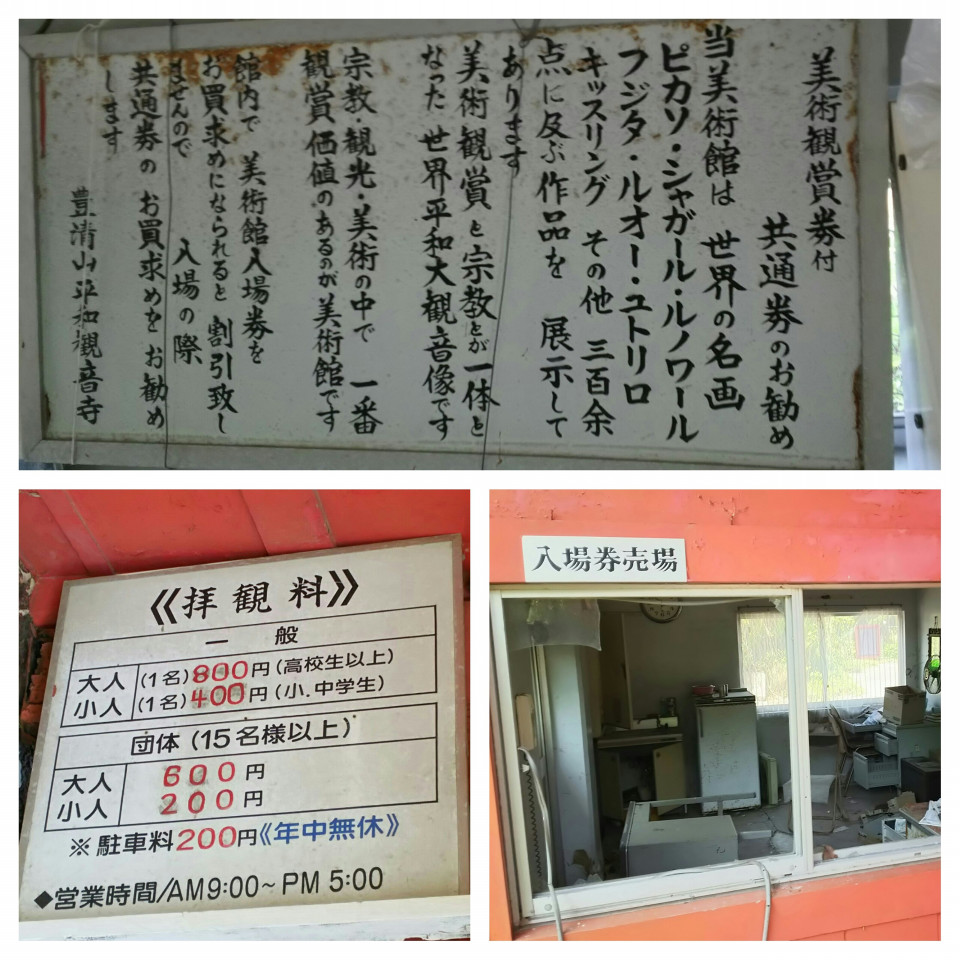 美術観賞券付
共通券のお勧め
当美術館は 世界の名画
ピカソ・シャガール・ルノワール
フジタ・ルオー・ユトリロ
キッスリング その他 三百余
点に及ぶ作品を 展示して
あります
美術観賞と宗教とが一体と
なった 世界平和大観音像です
宗教・観光・美術の中で 一番
観賞価値のあるのが美術館です
館内で 美術館入場券を
お買求めになられると 割引致し
ませんので 入場の際
共通券の お買求めを お勧め
します
豊清山平和観音寺
《拝観料》
一般
大人 (1名)800円(高校生以上)
小人 (1名)400円(小.中学生)
団体(15名様以上)
大人 600円
小人 200円
※駐車料200円《年中無休》
◆営業時間/AM9:00~PM5:00
入場券売場